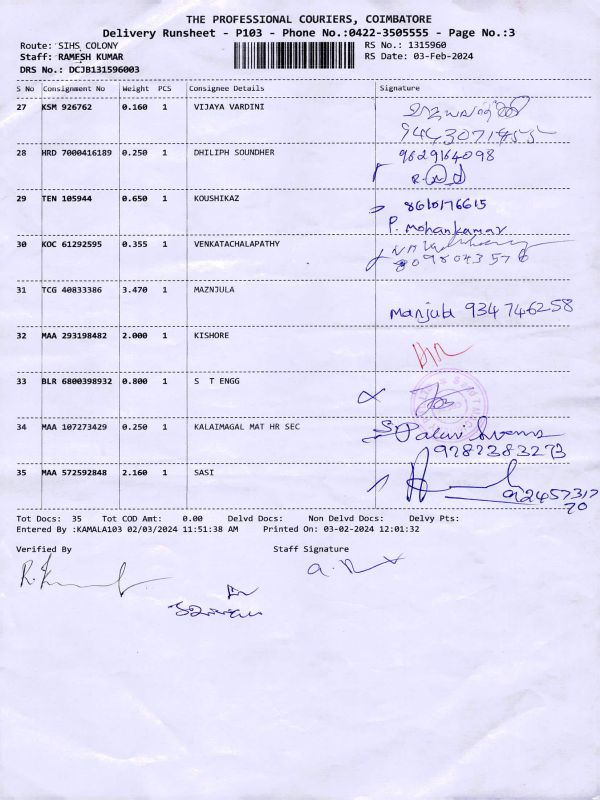 THE PROFESSIONAL COURIERS, COIMBATORE
Delivery Runsheet - P103 - Phone No.:0422-3505555 - Page No.:3
Route: SIHS COLONY RS No.: 1315960
Staff: RAMESH KUMAR RS Date: 03-Feb-2024
DRS No.: DCJB131596003
S No Consignment No Weight PCS Consignee Details Signature
27 KSM 926762 0.160 1 VIJAYA VARDINI
28 HRD 7000416189 0.250 1 DHILIPH SOUNDHER 9629164098
29 TEN 105944 0.650 1 KOUSHIKAZ 8610176615
P. Mohankumar
30 KOC 61292595 0.355 1 VENKATACHALAPATHY
8098043576
31 TCG 40833386 3.470 1 MAZNJULA
Manjula 934746258
32 MAA 293198482 2.000 1 KISHORE
33 BLR 6800398932 0.800 1 S T ENGG
34 MAA 107273429 0.250 1 KALAIMAGAL MAT HR SEC
9282383273
35 MAA 572592848 2.160 1 SASI
Tot Docs: 35 Tot COD Amt: 0.00 Delvd Docs: Non Delvd Docs: Delvy Pts:
Entered By :KAMALA103 02/03/2024 11:51:38 AM Printed On: 03-02-2024 12:01:32
Verified By Staff Signature